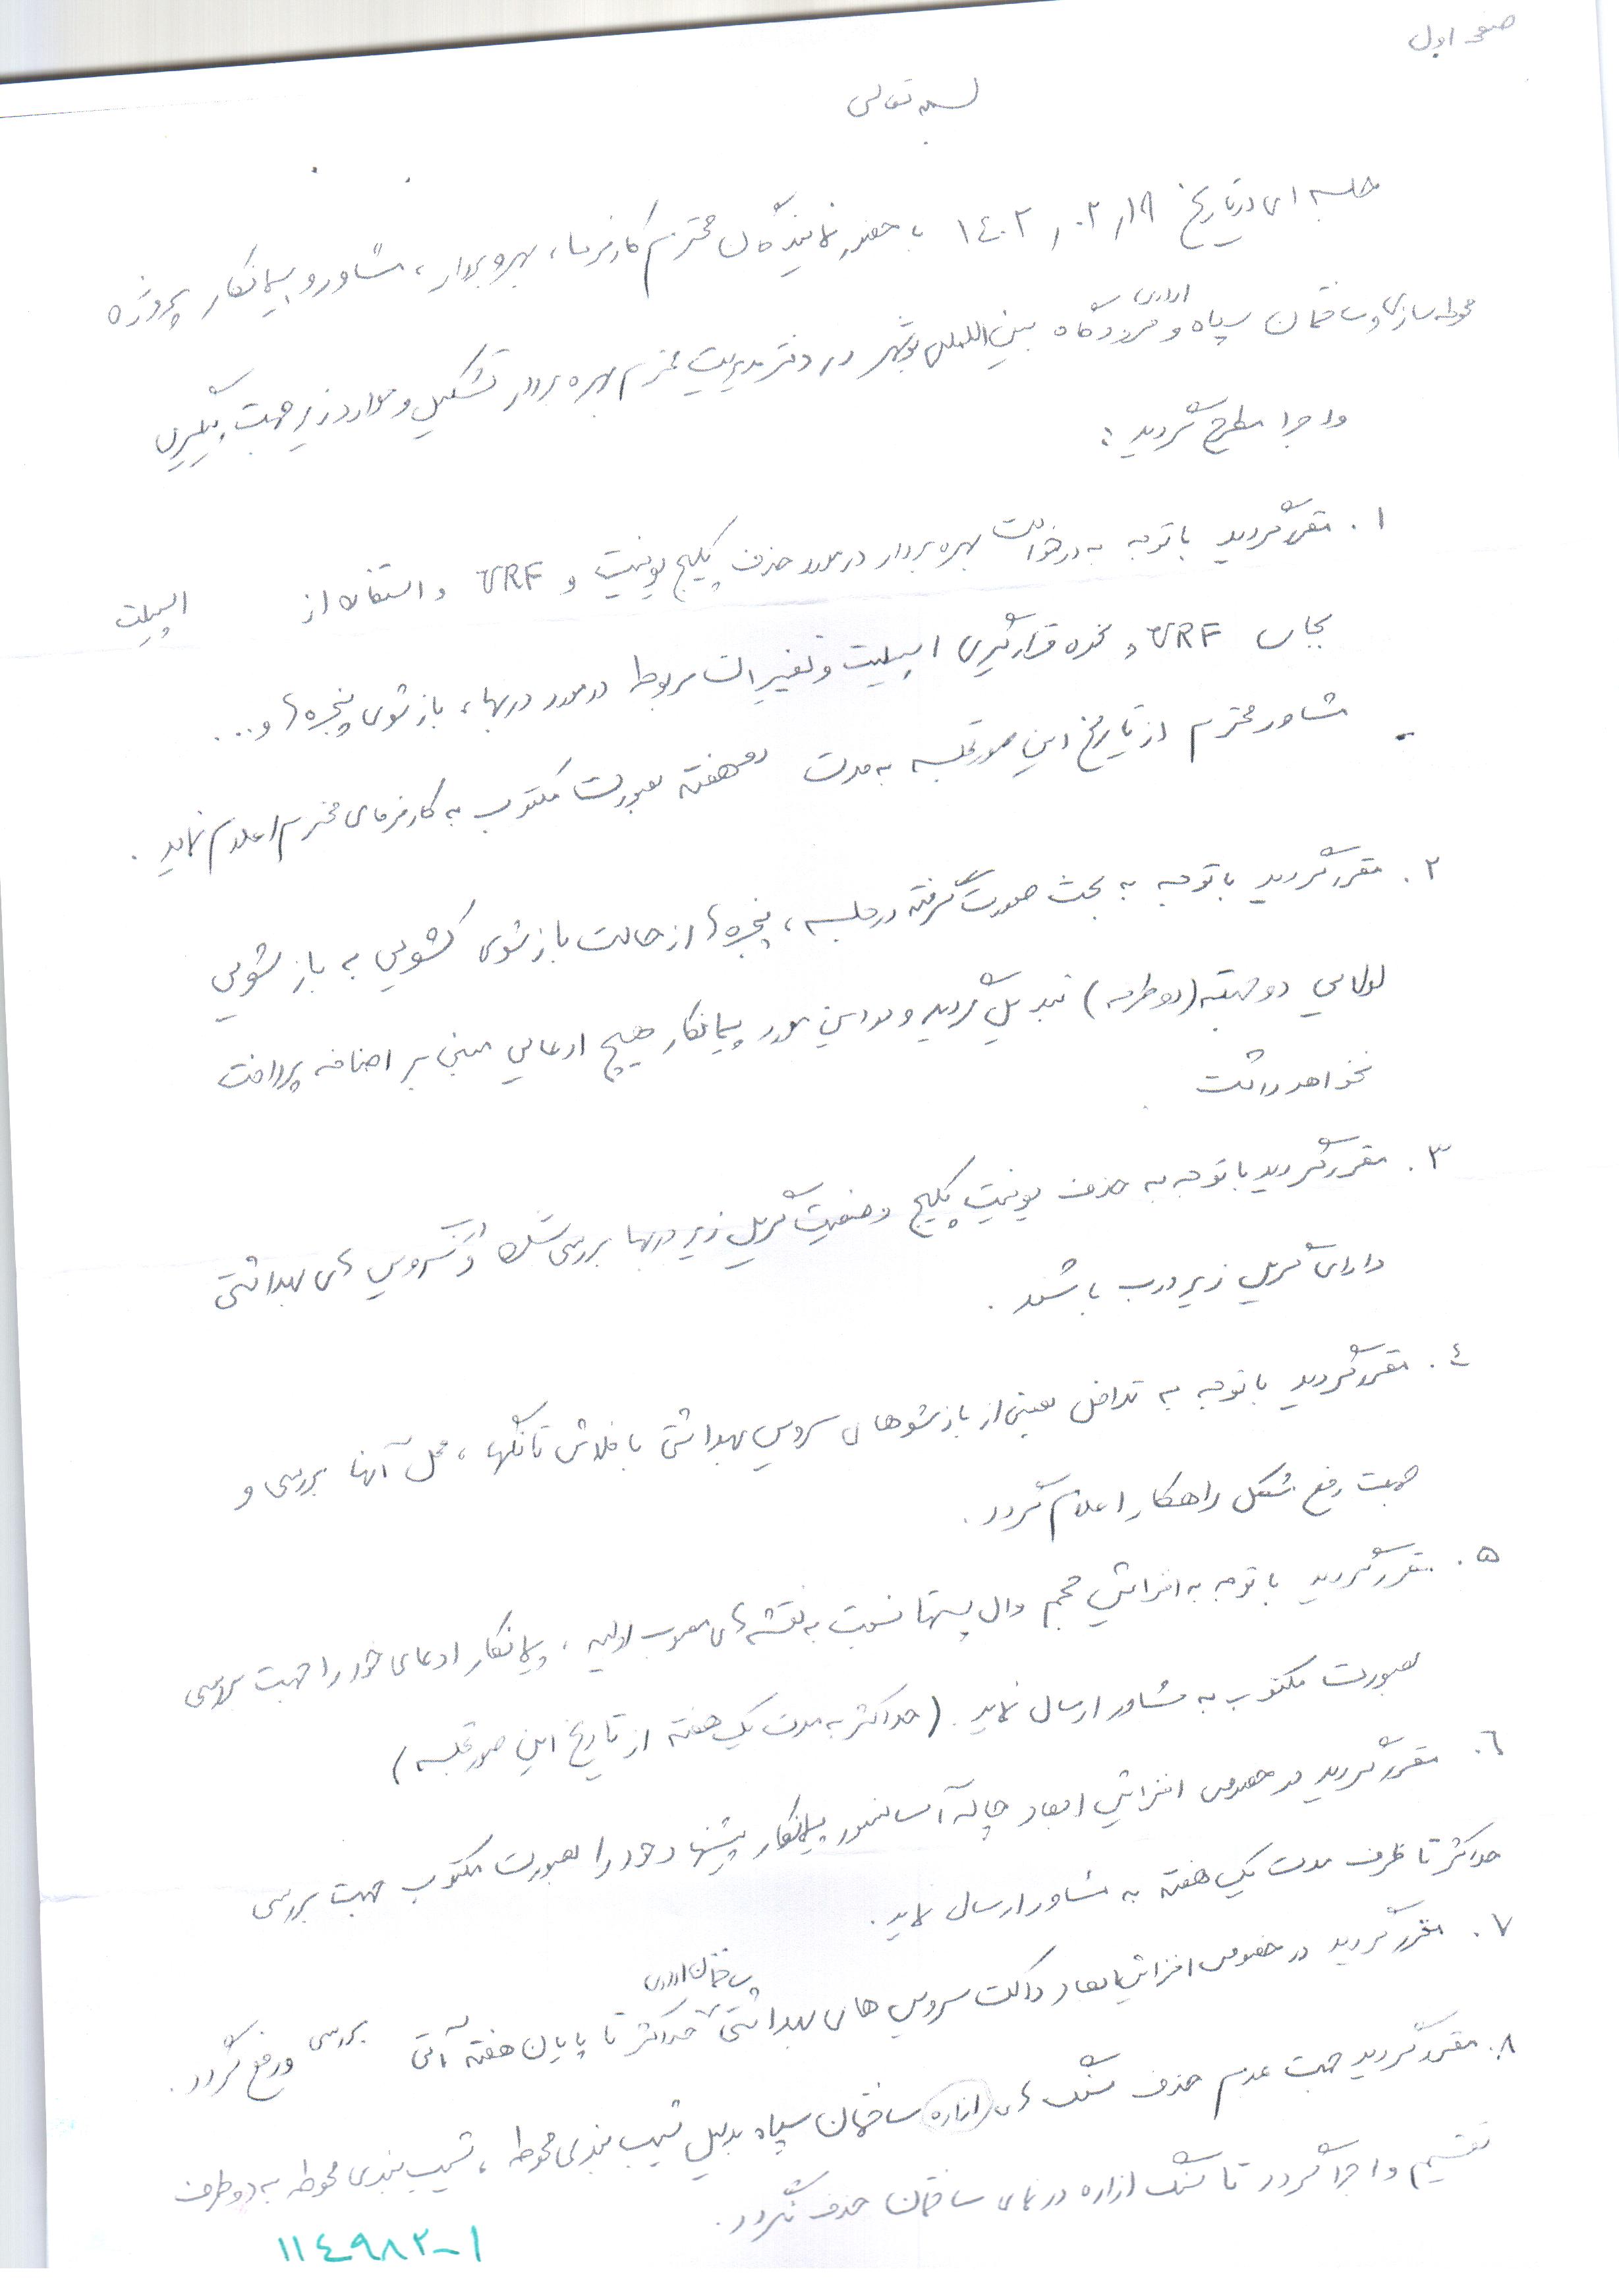 صفحه اول
بسمه تعالی
جلسه ای در تاریخ ۱۴۰۲٫۰۲٫۱۹ با حضور نمایندگان محترم کارفرما، بهره بردار، مشاور و پیمانکار پروژه
محوطه سازی و ساختمان سپاه و اداری فرودگاه بین المللی بوشهر در دفتر مدیریت محترم بهره بردار تشکیل و موارد زیر جهت پیگیری
و اجرا مطرح گردید :
۱. مقرر گردید با توجه به درخواست بهره بردار در مورد حذف پکیج یونیت و VRF و استفاده از اسپلیت
بجای VRF و نحوه قرارگیری اسپلیت و تغییرات مربوط در مورد دربها، بازشوی پنجره ها و ...
مشاور محترم از تاریخ این صورتجلسه به مدت دو هفته بصورت مکتوب به کارفرمای محترم اعلام نماید .
۲. مقرر گردید با توجه به بحث صورت گرفته در جلسه، پنجره ها از حالت بازشوی کشویی به بازشویی
لولایی دو جهته (دو طرفه) تبدیل گردید و در این مورد پیمانکار هیچ ادعایی مبنی بر اضافه پرداخت
نخواهد داشت
۳. مقرر گردید با توجه به حذف یونیت پکیج وضعیت گریل زیر دربها بررسی شده و سرویس های بهداشتی
دارای گریل زیر درب باشند .
٤. مقرر گردید با توجه به تداخل بعضی از بازشوهای سرویس بهداشتی با فلاش تانکها، محل آنها بررسی و
جهت رفع مشکل راهکار اعلام گردد .
۵. مقرر گردید با توجه به افزایش حجم وال پستها نسبت به نقشه های مصوب اولیه، پیمانکار ادعای خود را جهت بررسی
بصورت مکتوب به مشاور ارسال نماید . (حداکثر به مدت یک هفته از تاریخ این صورتجلسه)
٦. مقرر گردید در خصوص افزایش ابعاد چاله آسانسور پیمانکار پیشنهاد خود را بصورت مکتوب جهت بررسی
حداکثر تا ظرف مدت یک هفته به مشاور ارسال نماید .
۷. مقرر گردید در خصوص افزایش ابعاد داکت سرویس های بهداشتی ساختمان اداری حداکثر تا پایان هفته آتی بررسی و رفع گردد .
۸. مقرر گردید جهت عدم حذف سنگ های (ازاره) ساختمان سپاه بدلیل شیب بندی محوطه، شیب بندی محوطه به دو طرف
تقسیم و اجرا گردد تا سنگ ازاره در نمای ساختمان حذف نگردد .
۱۱٤۹۸۲-۱